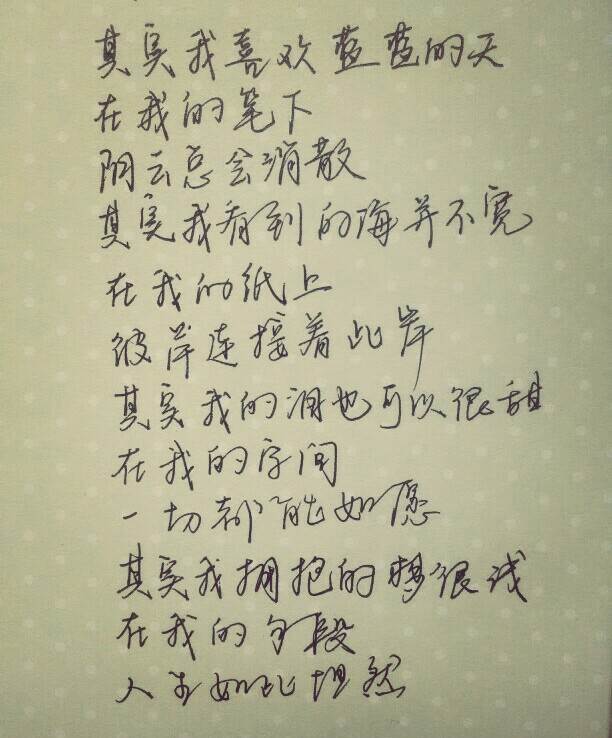 其实我喜欢蓝蓝的天
在我的笔下
阴云总会消散
其实我看到的海并不宽
在我的纸上
彼岸连接着此岸
其实我的泪也可以很甜
在我的字间
一切都能如愿
其实我拥抱的梦很浅
在我的手段
人生如此坦然